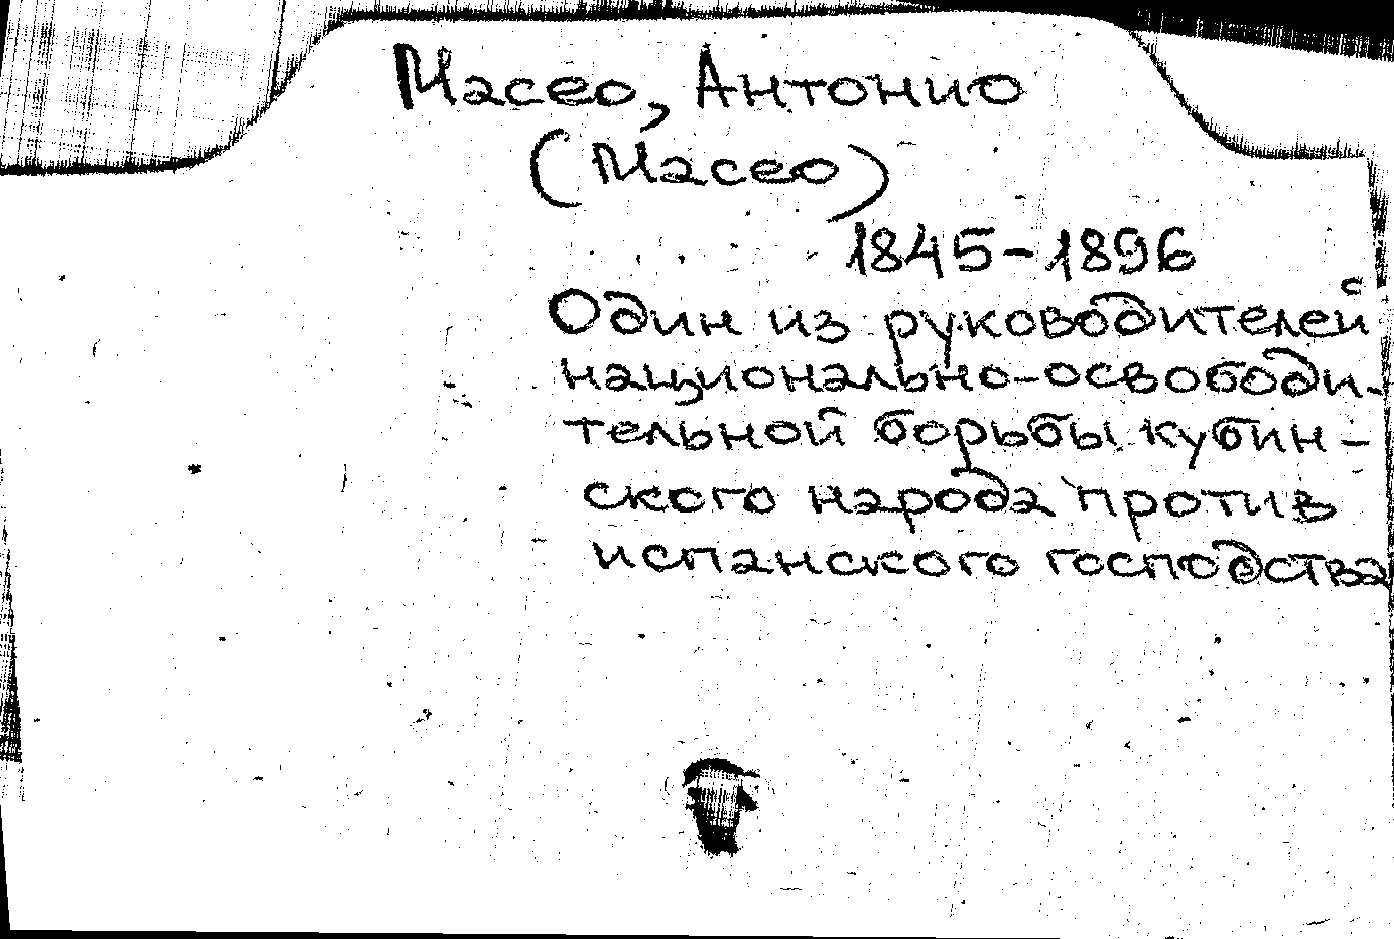 Масео, Антонио
(Масео)
1845-1896
Один из руководителей
национально-освободи-
тельной борьбы кубин-
ского народа против
испанского господства